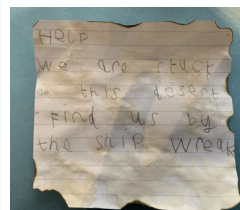 HELP
we are stuck
on this desert
Find us by
the ship wreak